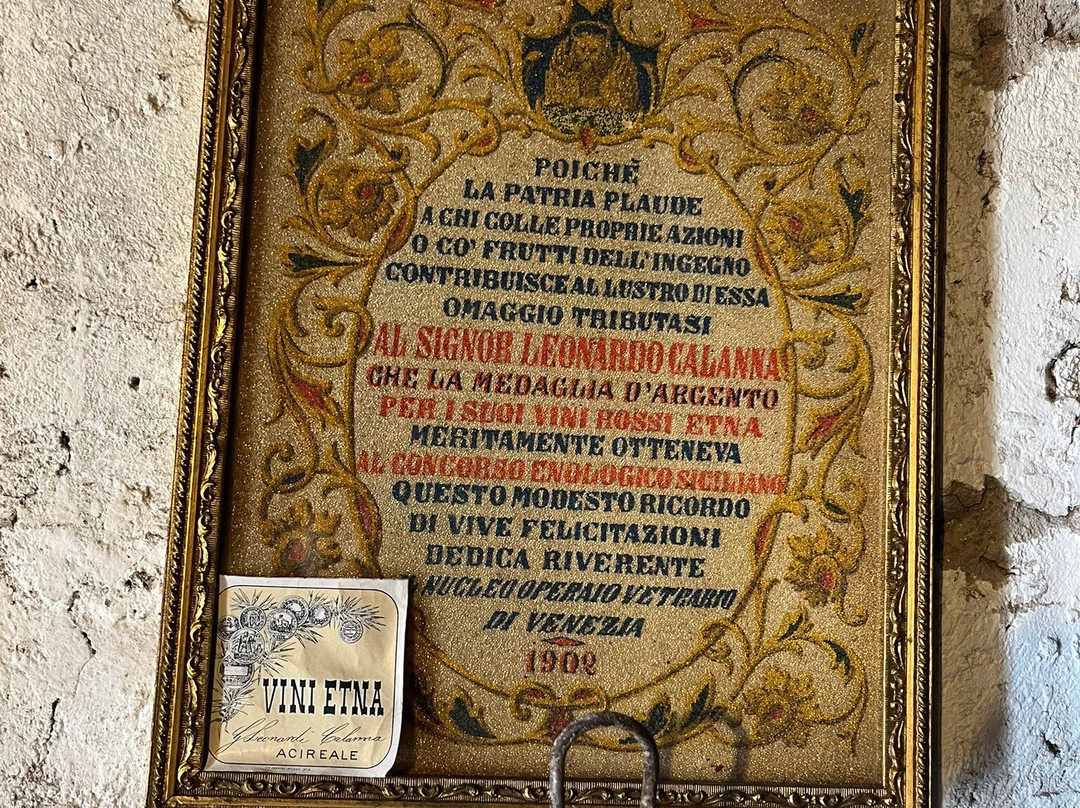 POICHÈ
LA PATRIA PLAUDE
A CHI COLLE PROPRIE AZIONI
O CO' FRUTTI DELL'INGEGNO
CONTRIBUISCE AL LUSTRO DI ESSA
OMAGGIO TRIBUTASI
AL SIGNOR LEONARDO CALANNA
CHE LA MEDAGLIA D'ARGENTO
PER I SUOI VINI ROSSI ETNA
MERITAMENTE OTTENEVA
AL CONCORSO ENOLOGICO SICILIANO
QUESTO MODESTO RICORDO
DI VIVE FELICITAZIONI
DEDICA RIVERENTE
NUCLEO OPERAIO VETRARIO
DI VENEZIA
1902
VINI ETNA
G. Leonardi Calanna
ACIREALE